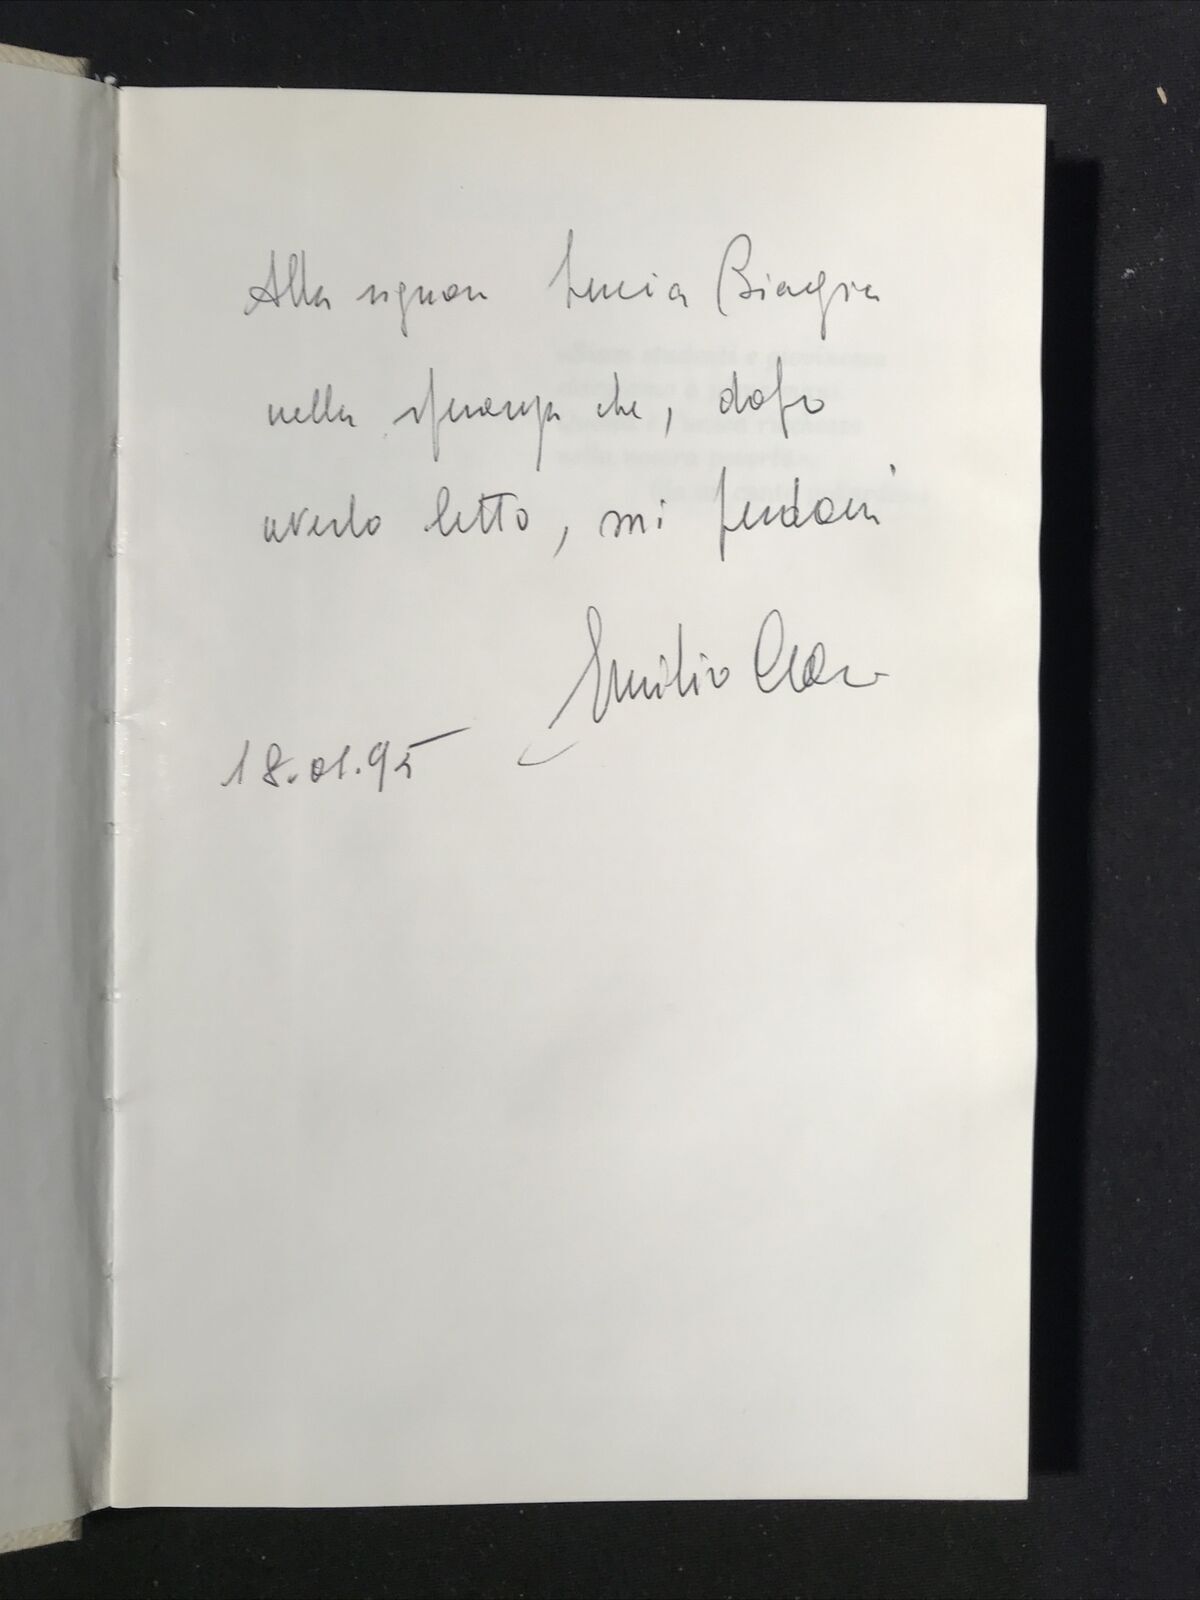 Alla signora Lucia Biagia
nella speranza che, dopo
averlo letto, mi perdoni
Emilio
18.01.95